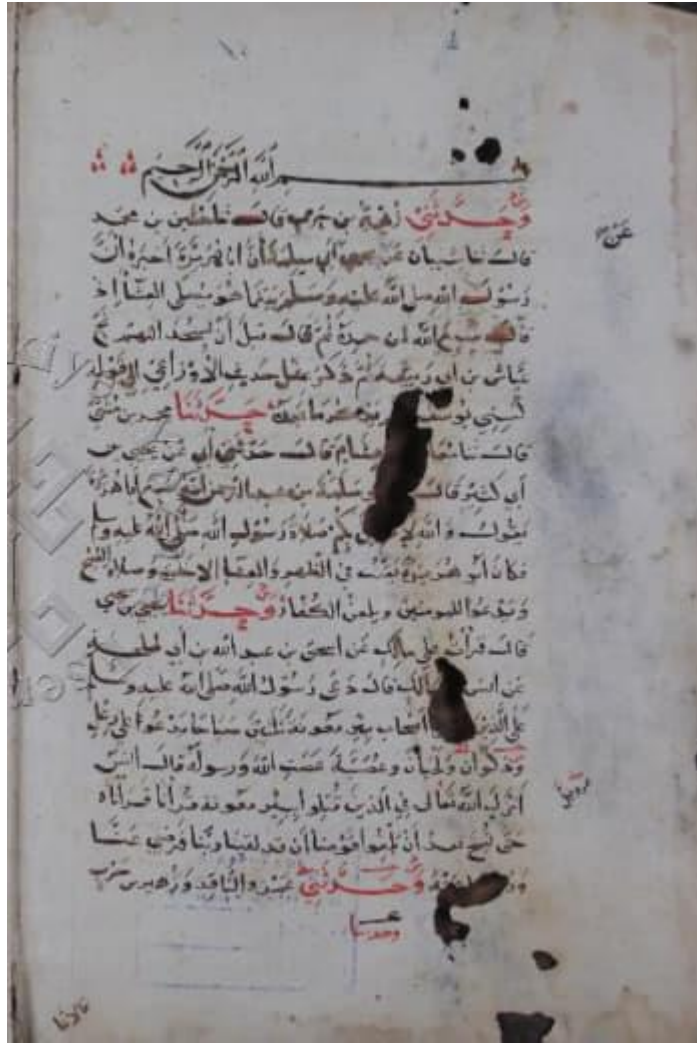 بسم الله الرحمن الرحيم
وحدثني زهير بن حرب قال نا حسين بن محمد
قال نا شيبان عن يحيى عن أبي سلمة أن أبا هريرة أخبره أن
رسول الله صلى الله عليه وسلم بينما هو يصلي العشاء إذ
قال سمع الله لمن حمده ثم قال قبل أن يسجد اللهم نج
عياش بن أبي ربيعة ثم ذكر مثل حديث الأوزاعي إلى قوله
كسني يوسف ولم يذكر ما بعده حدثنا محمد بن مثنى
قال نا معاذ هشام قال حدثني أبي عن يحيى بن
أبي كثير قال سلمة بن عبد الرحمن أنه سمع أبا هريرة
يقول والله بكم صلاة رسول الله صلى الله عليه وسلم
فكان أبو هريرة يقنت في الظهر والعشاء الآخرة وصلاة الصبح
ويدعوا للمومنين ويلعن الكفار وحدثنا يحيى بن يحيى
قال قرأت على مالك عن اسحق بن عبد الله بن أبي طلحة
عن أنس مالك قال دعى رسول الله صلى الله عليه وسلم
على الذين أصحاب بئر معونة ثلاثين صباحا يدعوا على رعل
وذكوان ولحيان وعصية عصت الله ورسوله قال أنس
أنزل الله تعالى في الذين قتلوا ببئر معونة قرأنا قرأناه
حتى نسخ بعد أن بلغوا قومنا أن قد لقينا ربنا فرضي عنا
وحدثني عمرو الناقد وزهير بن حرب
وحدثنا
عن
قالانا